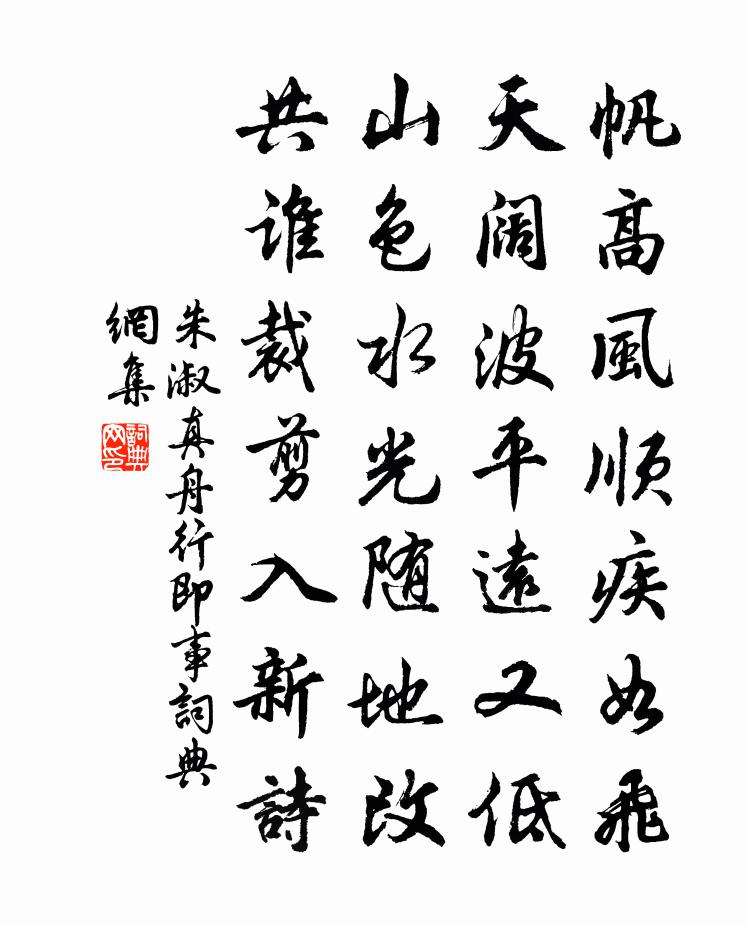 帆高風順疾如飛
天闊波平遠又低
山色水光随地改
共誰裁剪入新詩
朱淑真舟行即事詞典
網集
詞典網印